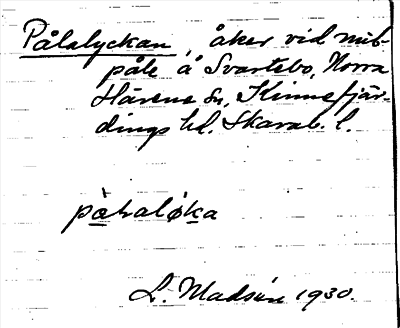 Pålalyckan, åker vid mils-
påle å Svartebo, Norra
Härene sn, Kinnefjär-
dings hd. Skarab. l.
L. Madsén 1930.